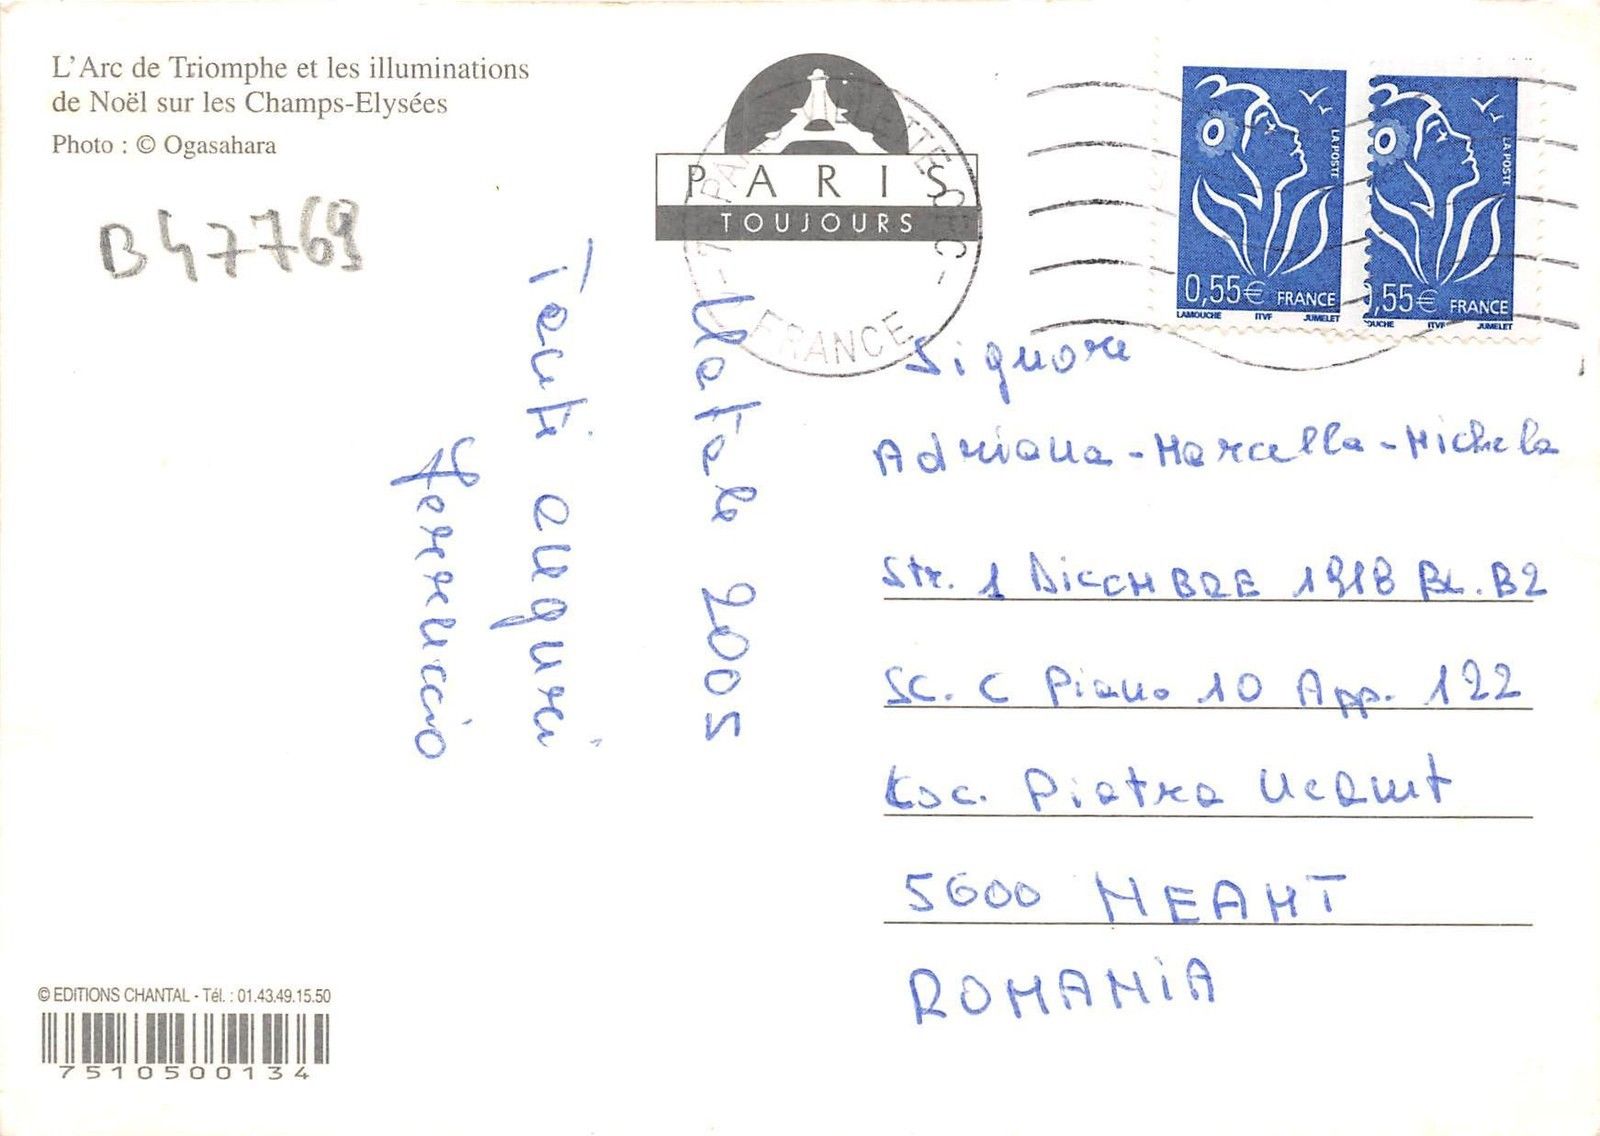 L'Arc de Triomphe et les illuminations
de Noël sur les Champs-Elysées
Photo : © Ogasahara
B47769
PARIS
TOUJOURS
FRANCE
LA POSTE
0,55€ FRANCE
LAMOUCHE ITVF JUMELET
LA POSTE
,55€ FRANCE
OUCHE ITVF JUMELET
Natale 2005
Tanti auguri
Ferruccio
Signore
Adriana-Marcella-Michela
Str. 1 DICEMBRE 1918 BL. B2
SC. C Piano 10 App. 122
Loc. Piatra Neamt
5600 NEAMT
ROMANIA
© EDITIONS CHANTAL - Tél. : 01.43.49.15.50
7510500134